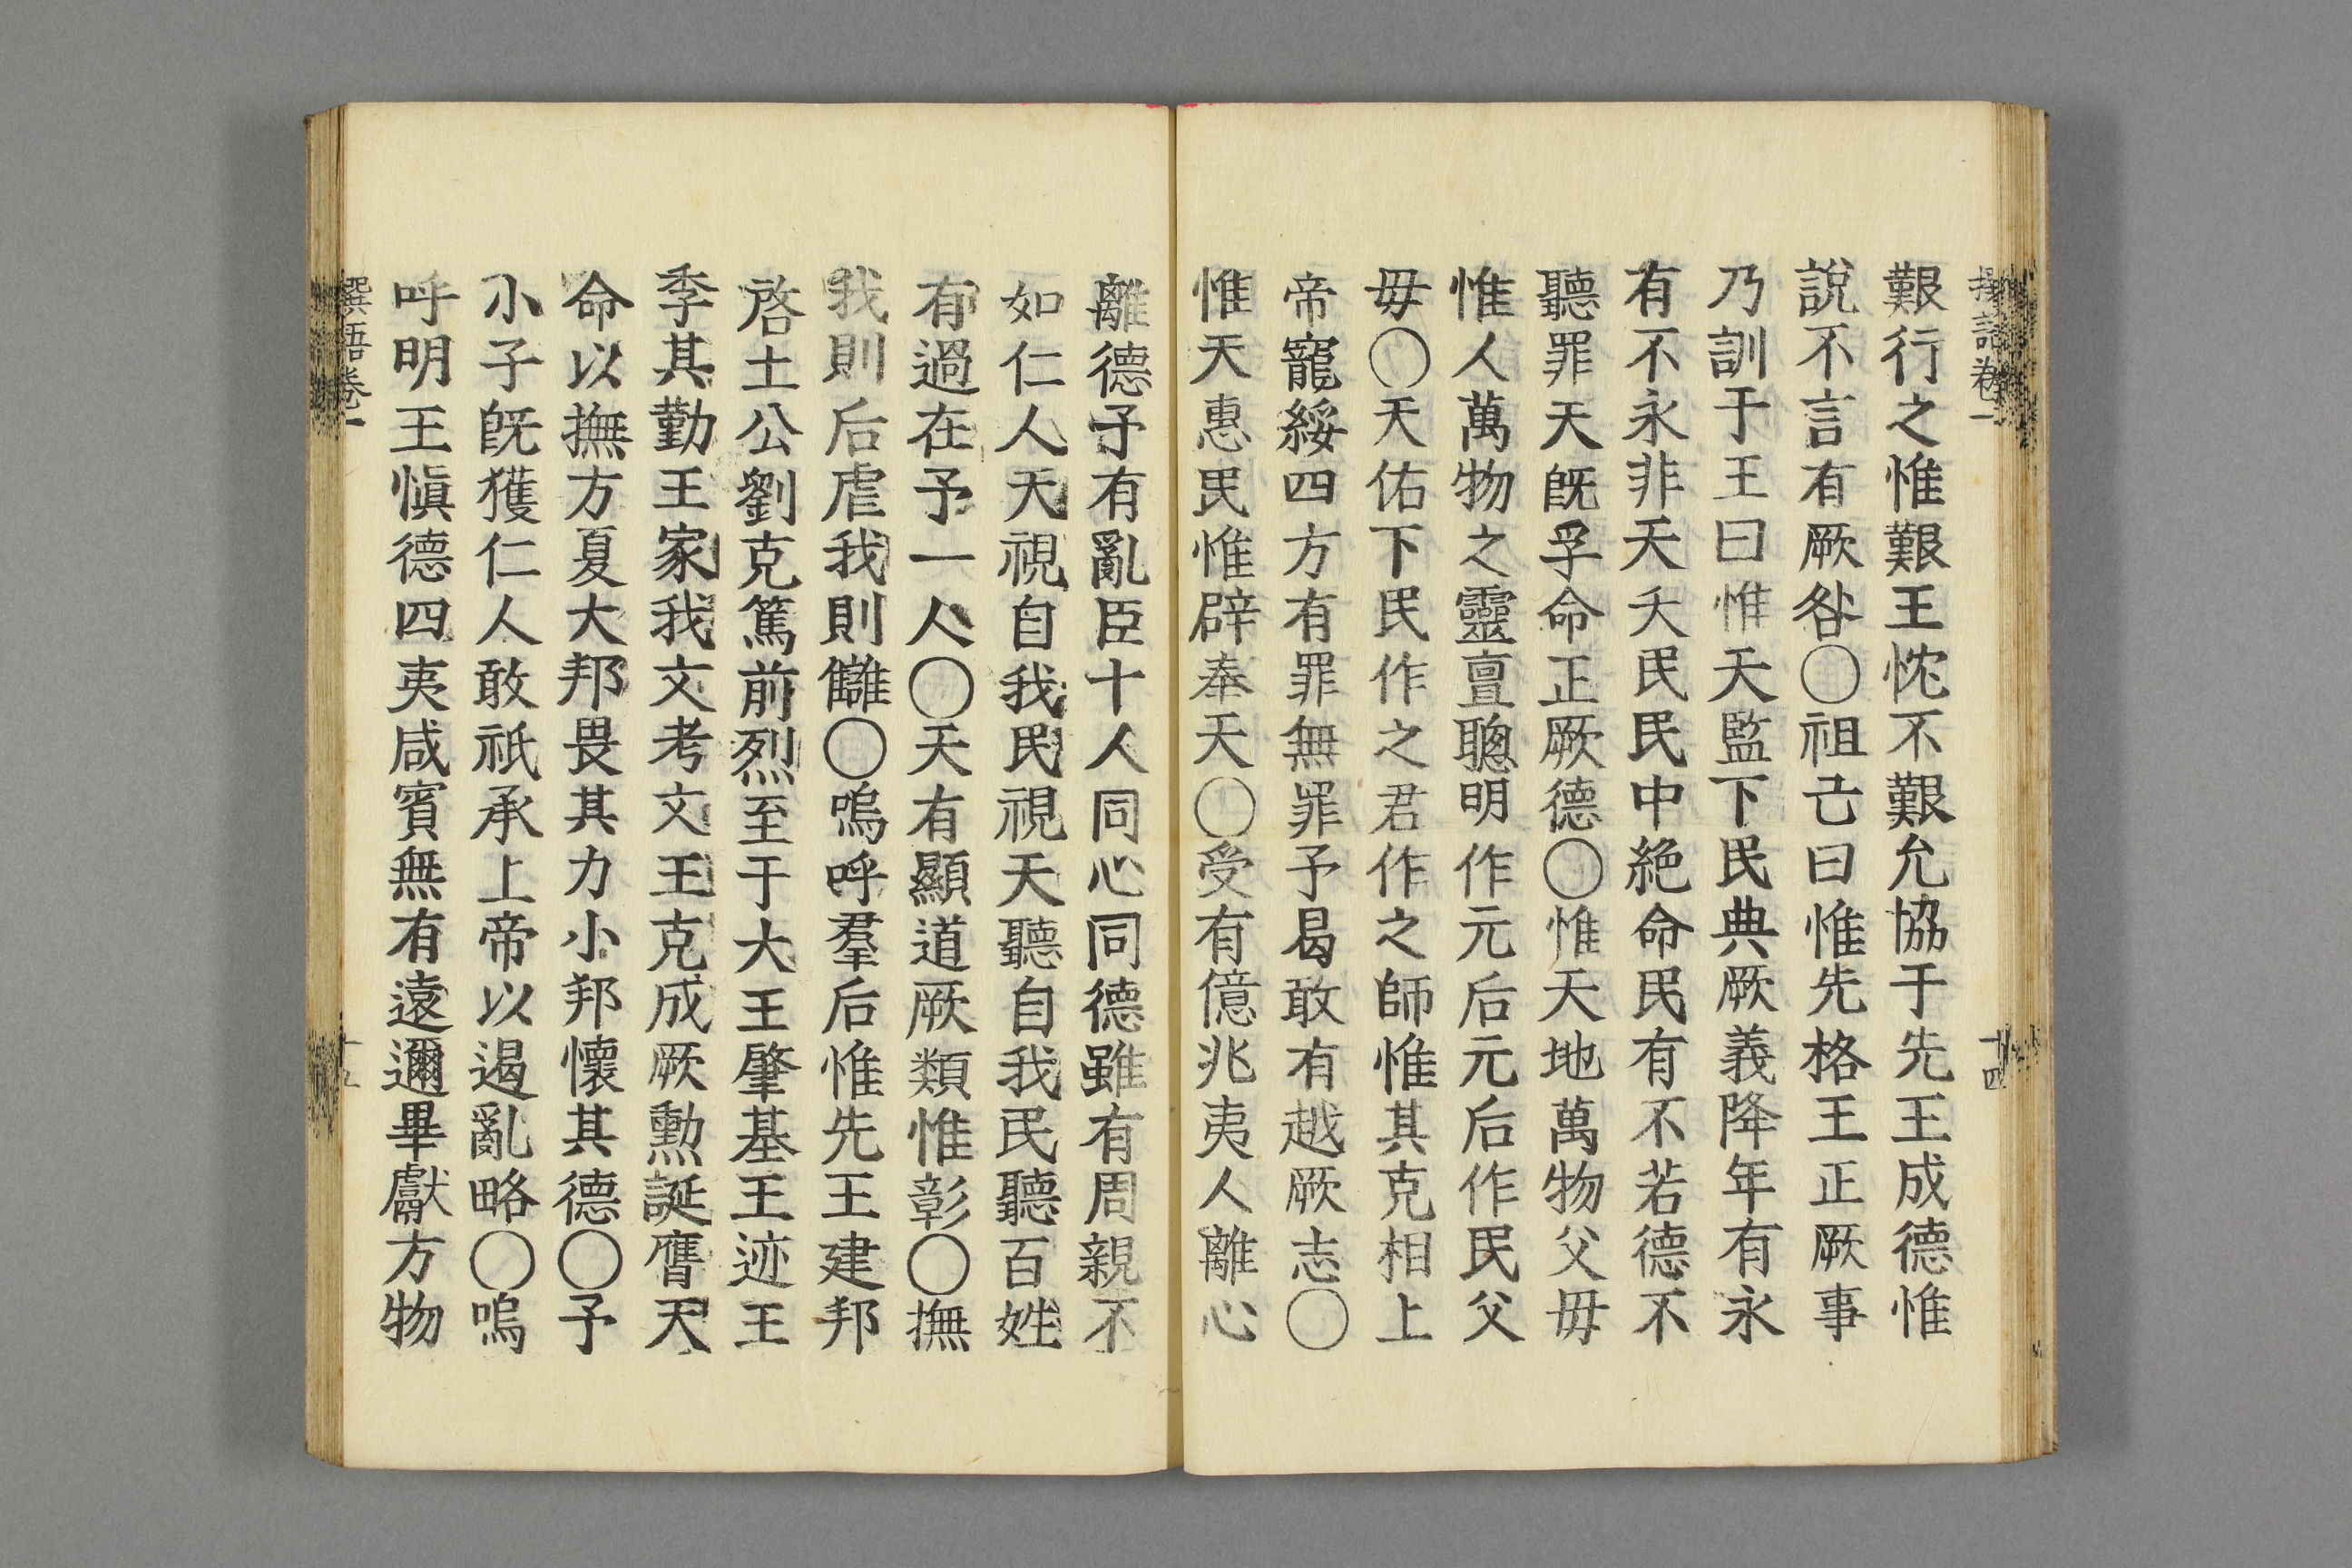 艱行之惟艱王忱不艱允協于先王成德惟
說不言有厥咎〇祖己曰惟先格王正厥事
乃訓于王曰惟天監下民典厥義降年有永
有不永非天夭民民中絶命民有不若德不
聽罪天既孚命正厥德〇惟天地萬物父毋
惟人萬物之靈亶聰明作元后元后作民父
毋〇天佑下民作之君作之師惟其克相上
帝寵綏四方有罪無罪予曷敢有越厥志〇
惟天惠民惟辟奉天〇受有億兆夷人離心
離德予有亂臣十人同心同德雖有周親不
如仁人天視自我民視天聽自我民聽百姓
有過在予一人〇天有顯道厥類惟彰〇撫
我則后虐我則讎〇嗚呼羣后惟先王建邦
啓土公劉克篤前烈至于大王肇基王迹王
季其勤王家我文考文王克成厥勲誕膺天
命以撫方夏大邦畏其力小邦懷其德〇予
小子既獲仁人敢祇承上帝以遏亂略〇嗚
呼明王愼德四夷咸賓無有遠邇畢獻方物
撰語卷一
十五